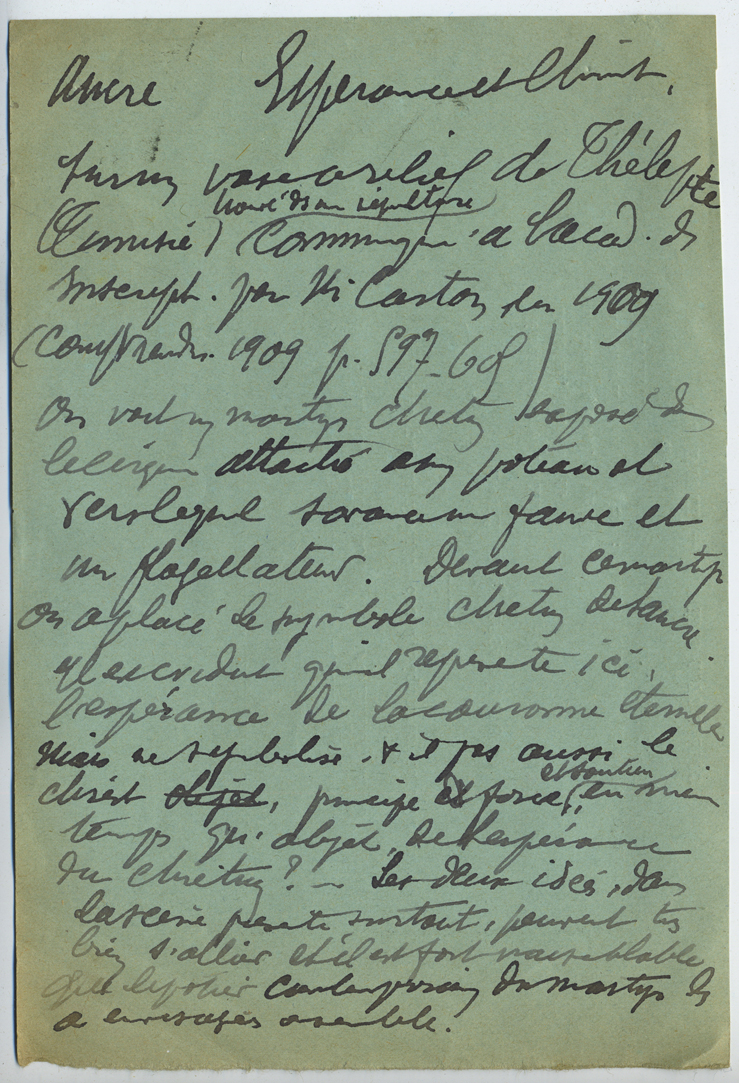 Ancre Espérance et Christ.
Sur un vase à relief de Thélepte
trouvé ds une sépulture
(Tunisie) Communiqué à l'acad. des
Inscript. par Mr Carton, en 1909
(Comptes rendus. 1909 p. 597-60 )
On voit un martyr chrétien exposé dans
le cirque attaché à un poteau et
vers lequel s'avance un fauve et
un flagellateur. Devant ce martyr
on a placé le symbole chrétien de l'ancre.
Il est évident qu'il représente ici,
l'espérance de la couronne éternelle
Mais ne symbolise-t-il pas aussi le
et soutien
Christ objet, principe et force, en même
temps qu'objet, de l'espérance
du chrétien? — Les deux idées, dans
la scène présente surtout, peuvent très
bien s'allier et il est fort vraisemblable
que le potier contemporain du martyr les
a envisagés ensemble.